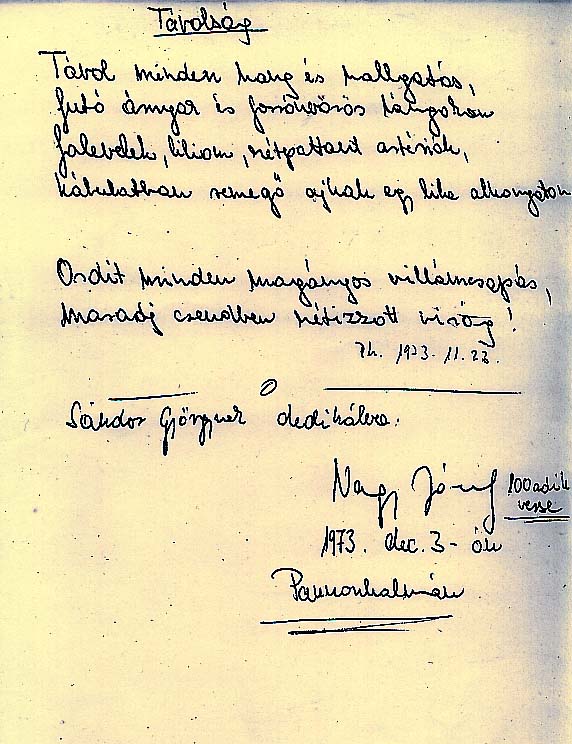 Távolság
Távol minden hang és hallgatás,
futó árnyak és forróvörös lángokon
falevelek, liliom, szétpattant artériák,
kábulatban remegő ajkak egy lila alkonyaton
Ordít minden magányos villámcsapás,
maradj csendben szétizzott virág!
Ph. 1973. 11. 23.
Sándor Györgynek dedikálva.
Nagy József 100adik
verse
1973. dec. 3-án
Pannonhalmán